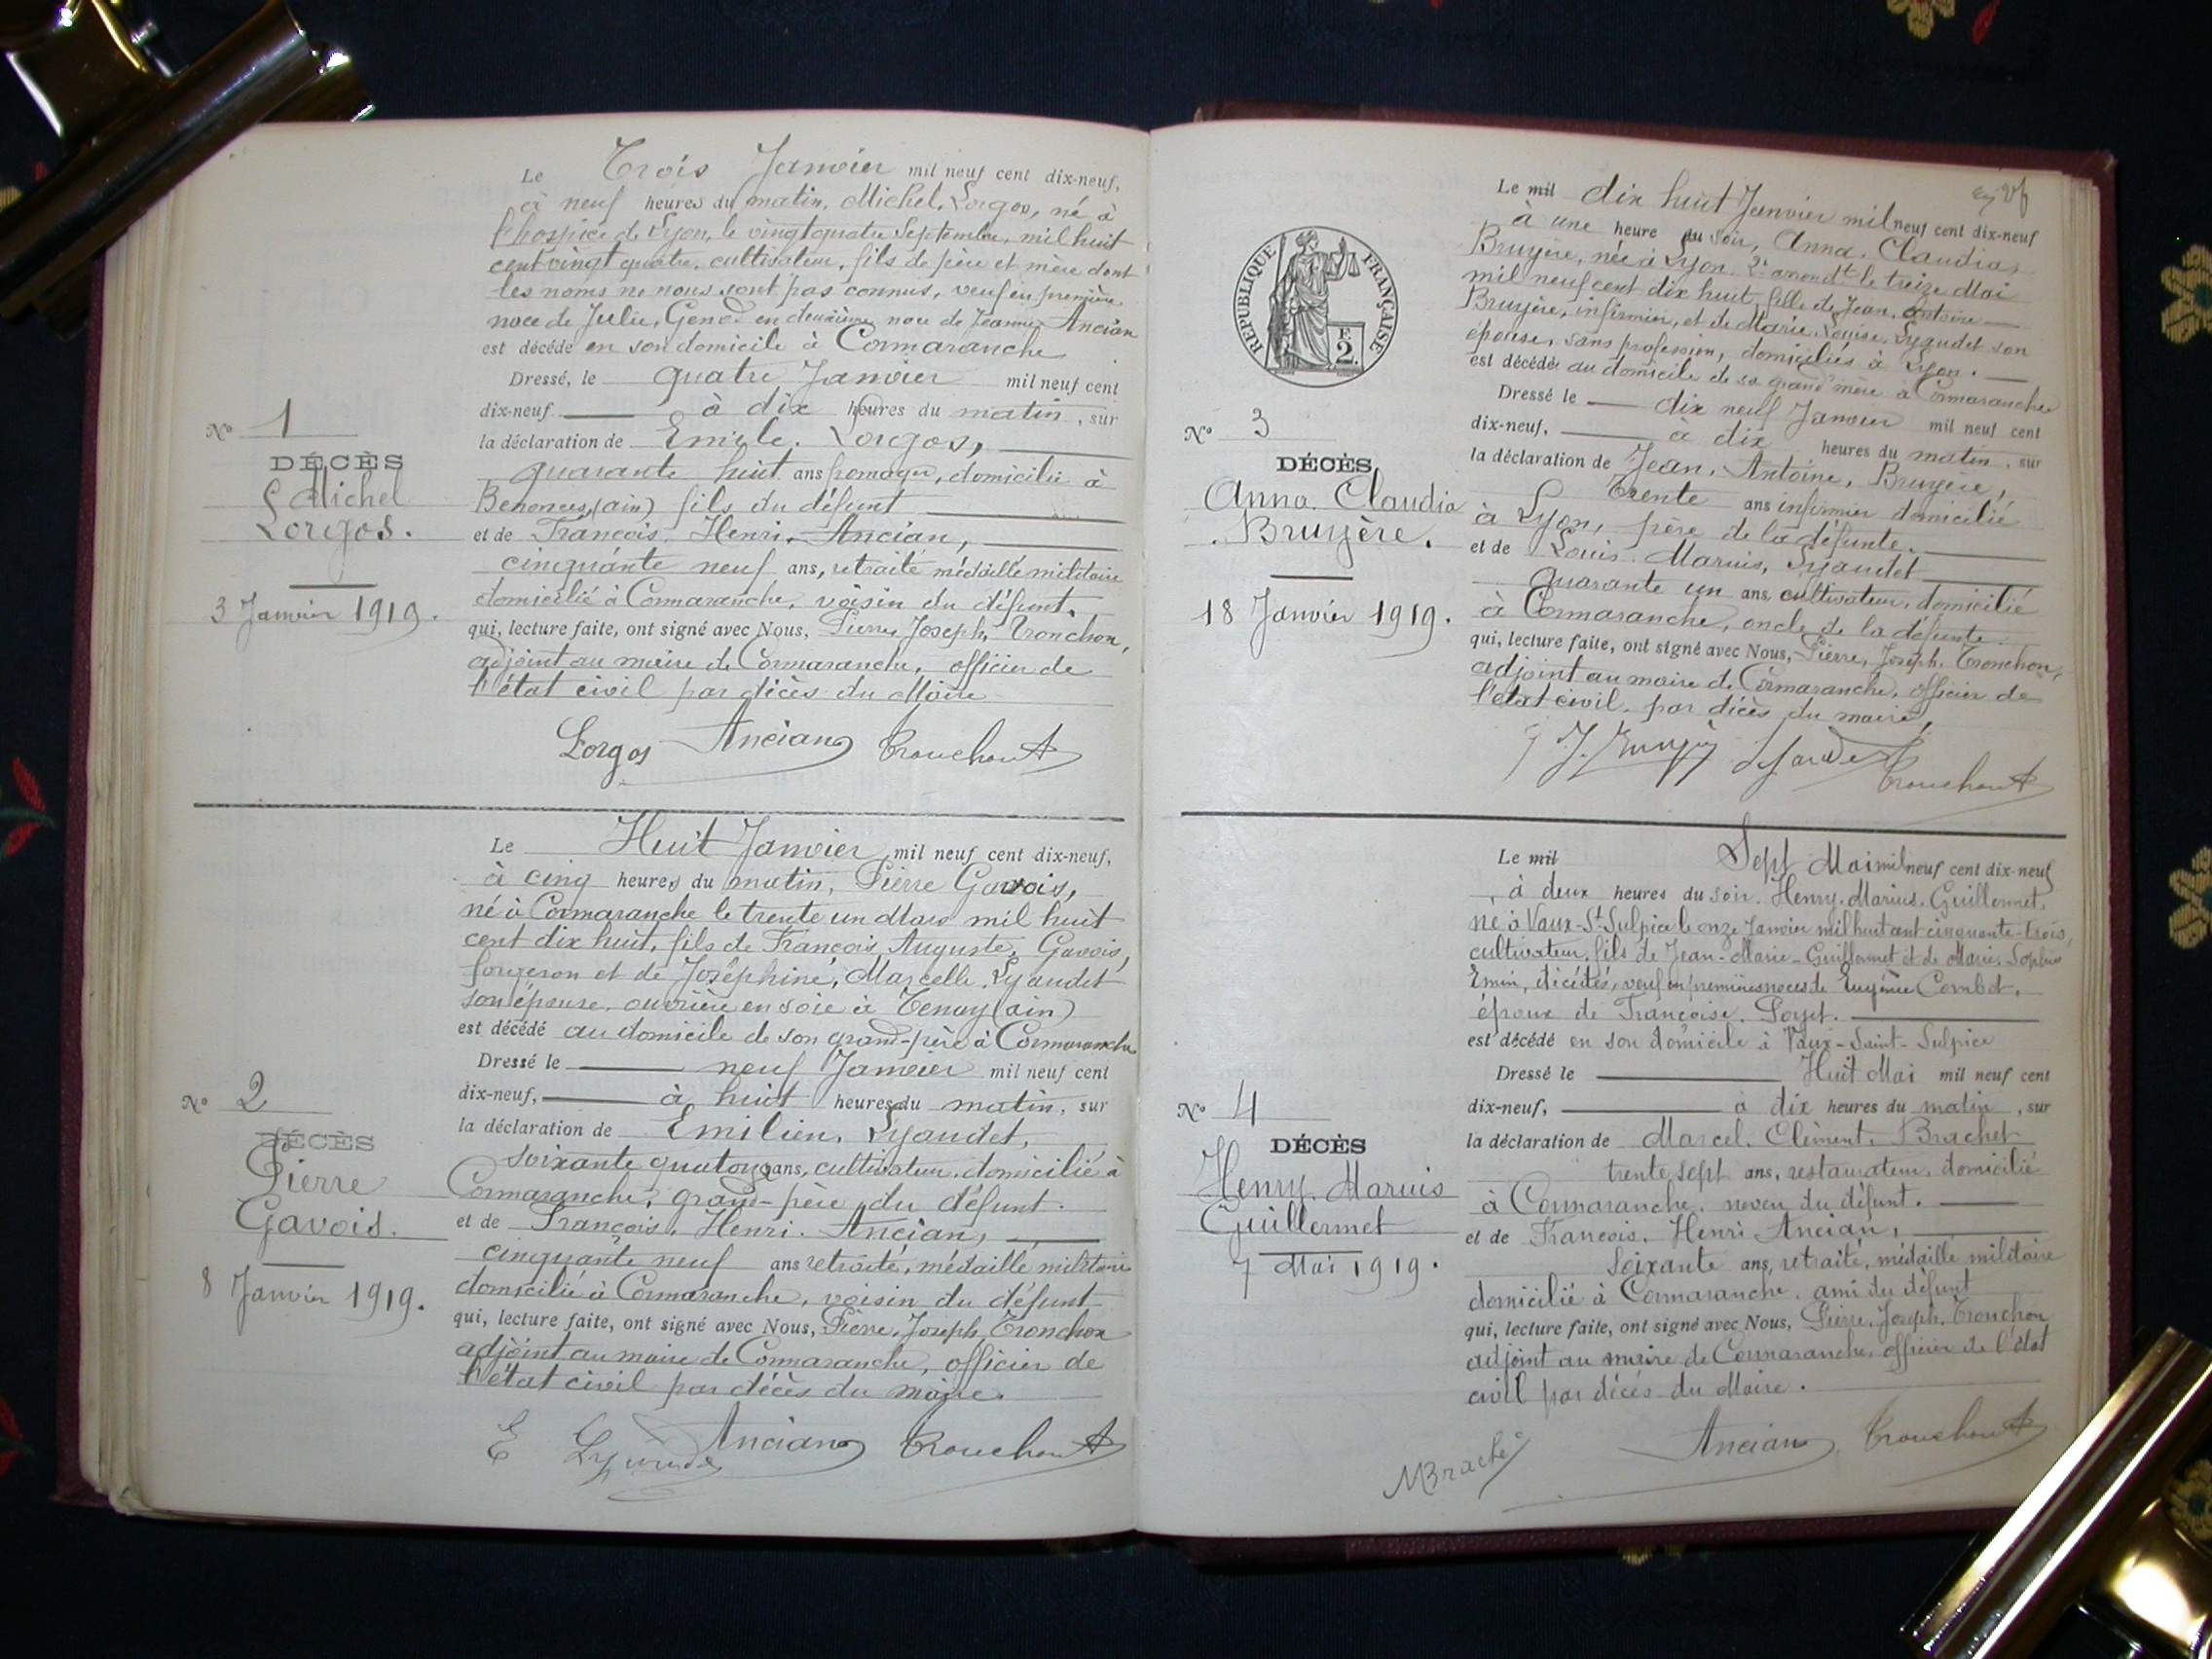 Le Trois Janvier mil neuf cent dix-neuf,
à neuf heures du matin, Michel, Lorgos, né à
l'hospice de Lyon, le vingt quatre Septembre, mil huit
cent vingt quatre, cultivateur, fils de père et mère dont
les noms ne nous sont pas connus, veuf en première
noce de Julie, Genod en deuxième noce de Jeanne, Ancian
est décédé en son domicile à Cormaranche
Dressé, le quatre Janvier mil neuf cent
dix-neuf à dix heures du matin, sur
la déclaration de Emile. Lorgos,
quarante huit ans fromager, domicilié à
Benonces, (ain) fils du défunt
et de François. Henri. Ancian,
cinquante neuf ans, retraité médaillé militaire
domicilié à Cormaranche, voisin du défunt,
qui, lecture faite, ont signé avec Nous, Pierre, Joseph, Tronchon,
adjoint au maire de Cormaranche, officier de
l'état civil par décès du Maire
Lorgos Ancian Tronchon
No 1
DÉCÈS
Michel
Lorgos.
3 Janvier 1919.
Le Huit Janvier mil neuf cent dix-neuf,
à cinq heures du matin, Pierre Gavois,
né à Cormaranche le trente un Mars mil huit
cent dix huit, fils de François, Auguste, Gavois,
forgeron et de Joséphine, Marcelle, Lyaudet
son épouse, ouvrière en soie à Tenay (ain)
est décédé au domicile de son grand-père à Cormaranche
Dressé le neuf Janvier mil neuf cent
dix-neuf, à huit heures du matin, sur
la déclaration de Emilien, Lyaudet,
soixante quatorze ans, cultivateur, domicilié à
Cormaranche, grand-père du défunt.
et de François, Henri. Ancian,
cinquante neuf ans retraité, médaillé militaire
domicilié à Cormaranche, voisin du défunt
qui, lecture faite, ont signé avec Nous, Pierre, Joseph, Tronchon
adjoint au maire de Cormaranche, officier de
l'état civil par décès du maire.
E Lyaudet Ancian Tronchon
No 2
DÉCÈS
Pierre
Gavois.
8 Janvier 1919.
Le mil dix huit Janvier mil neuf cent dix-neuf
à une heure du soir, Anna, Claudia,
Bruyère, née à Lyon 2e arrondt le treize Mai
mil neuf cent dix huit, fille de Jean, Antoine
Bruyère, infirmier, et de Marie, Louise, Lyaudet son
épouse, sans profession, domiciliés à Lyon.
est décédée au domicile de sa grand'mère à Cormaranche
Dressé le dix neuf Janvier mil neuf cent
dix-neuf, à dix heures du matin, sur
la déclaration de Jean, Antoine, Bruyère,
Trente ans infirmier domicilié
à Lyon, père de la défunte.
et de Louis. Marius, Lyaudet
quarante un ans, cultivateur, domicilié
à Cormaranche, oncle de la défunte.
qui, lecture faite, ont signé avec Nous, Pierre, Joseph. Tronchon,
adjoint au maire de Cormaranche, officier de
l'état civil. par décès du maire,
J. Bruyère Lyaudet
Tronchon
RÉPUBLIQUE FRANÇAISE
E.
2.
No 3
DÉCÈS
Anna. Claudia
Bruyère.
18 Janvier 1919.
Le mil Sept Mai mil neuf cent dix-neuf
à deux heures du soir. Henry. Marius. Guillermet,
né à Vaux-St-Sulpice le onze Janvier mil huit cent cinquante-trois,
cultivateur, fils de Jean-Marie-Guillermet et de Marie. Sophie
Emin, décédés, veuf en premières noces de Eugénie Combet,
époux de Françoise. Poyet.
est décédé en son domicile à Vaux-Saint-Sulpice
Dressé le Huit Mai mil neuf cent
dix-neuf, à dix heures du matin, sur
la déclaration de Marcel. Clément. Brachet
trente sept ans, restaurateur, domicilié
à Cormaranche, neveu du défunt.
et de François. Henri Ancian,
Soixante ans, retraité, médaille militaire
domicilié à Cormaranche, ami du défunt
qui, lecture faite, ont signé avec Nous, Pierre, Joseph. Tronchon
adjoint au maire de Cormaranche, officier de l'état
civil par décès du Maire.
MBrachet Ancian Tronchon
No 4
DÉCÈS
Henry. Marius
Guillermet
7 Mai 1919.